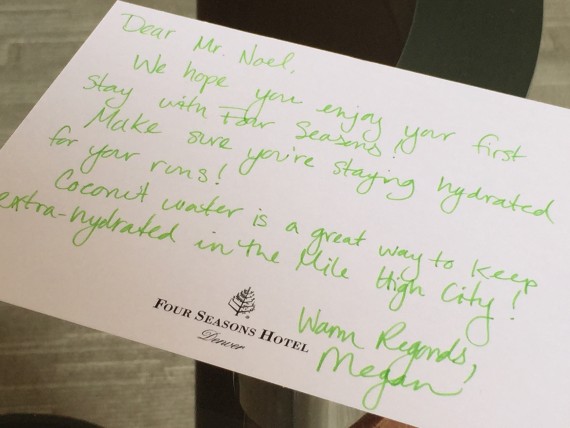 Dear Mr. Noel,
We hope you enjoy your first
stay with Four Seasons!
Make sure you're staying hydrated
for your runs!
Coconut water is a great way to keep
extra-hydrated in the Mile High City!
Warm Regards,
Megan
FOUR SEASONS HOTEL
Denver